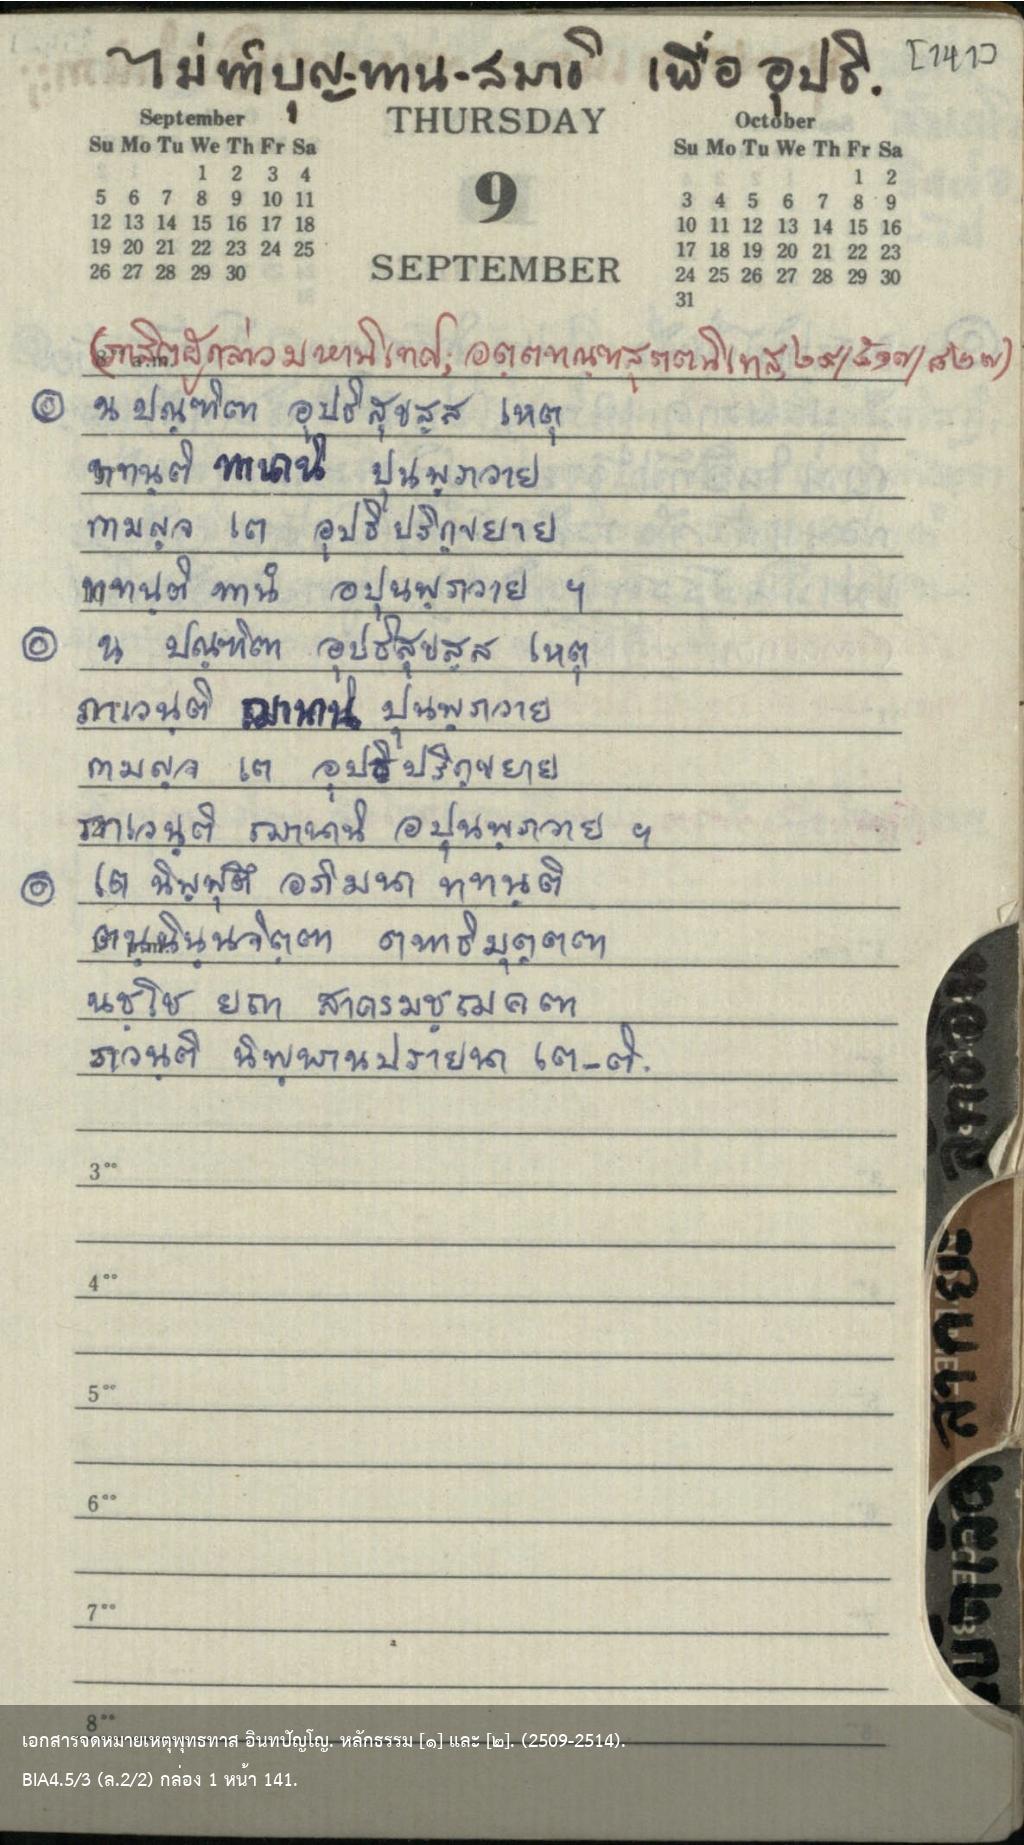 ไม่ทำบุญ-ทาน-สมาธิ เพื่ออุปธิ. [141]
September
THURSDAY
October
Su Mo Tu We Th Fr Sa
1 2 3 4
5 6 7 8 9 10 11
12 13 14 15 16 17 18
19 20 21 22 23 24 25
26 27 28 29 30
9
SEPTEMBER
Su Mo Tu We Th Fr Sa
1 2
3 4 5 6 7 8 9
10 11 12 13 14 15 16
17 18 19 20 21 22 23
24 25 26 27 28 29 30
31
(ภาษิตผู้กล่าว มหานิเทส; อตฺตทณฺฑสุตฺตนิเทส ๒๙/๕๑๗/๘๒๗)
น ปณฺฑิตา อุปธิสุขสฺส เหตุ
ททนฺติ ทานานิ ปุนพฺภวาย
กามญฺจ เต อุปธิปริกฺขยาย
ททนฺติ ทานํ อปุนพฺภวาย ฯ
น ปณฺฑิตา อุปธิสุขสฺส เหตุ
ภาเวนฺติ ฌานานิ ปุนพฺภวาย
กามญฺจ เต อุปธิปริกฺขยาย
ภาเวนฺติ ฌานานิ อปุนพฺภวาย ฯ
เต นิพฺพุตึ อภิมนา ททนฺติ
ตนฺนินฺนจิตฺตา ตทาธิมุตฺตตา
นชฺโช ยถา สาครมชฺฌคตา
ภวนฺติ นิพฺพานปรายนา เต-ติ.
3°°
4°°
5°°
6°°
7°°
8°°
ลายะ
เอกสารจดหมายเหตุพุทธทาส อินทปัญโญ. หลักธรรม [๑] และ [๒]. (2509-2514).
BIA4.5/3 (ล.2/2) กล่อง 1 หน้า 141.